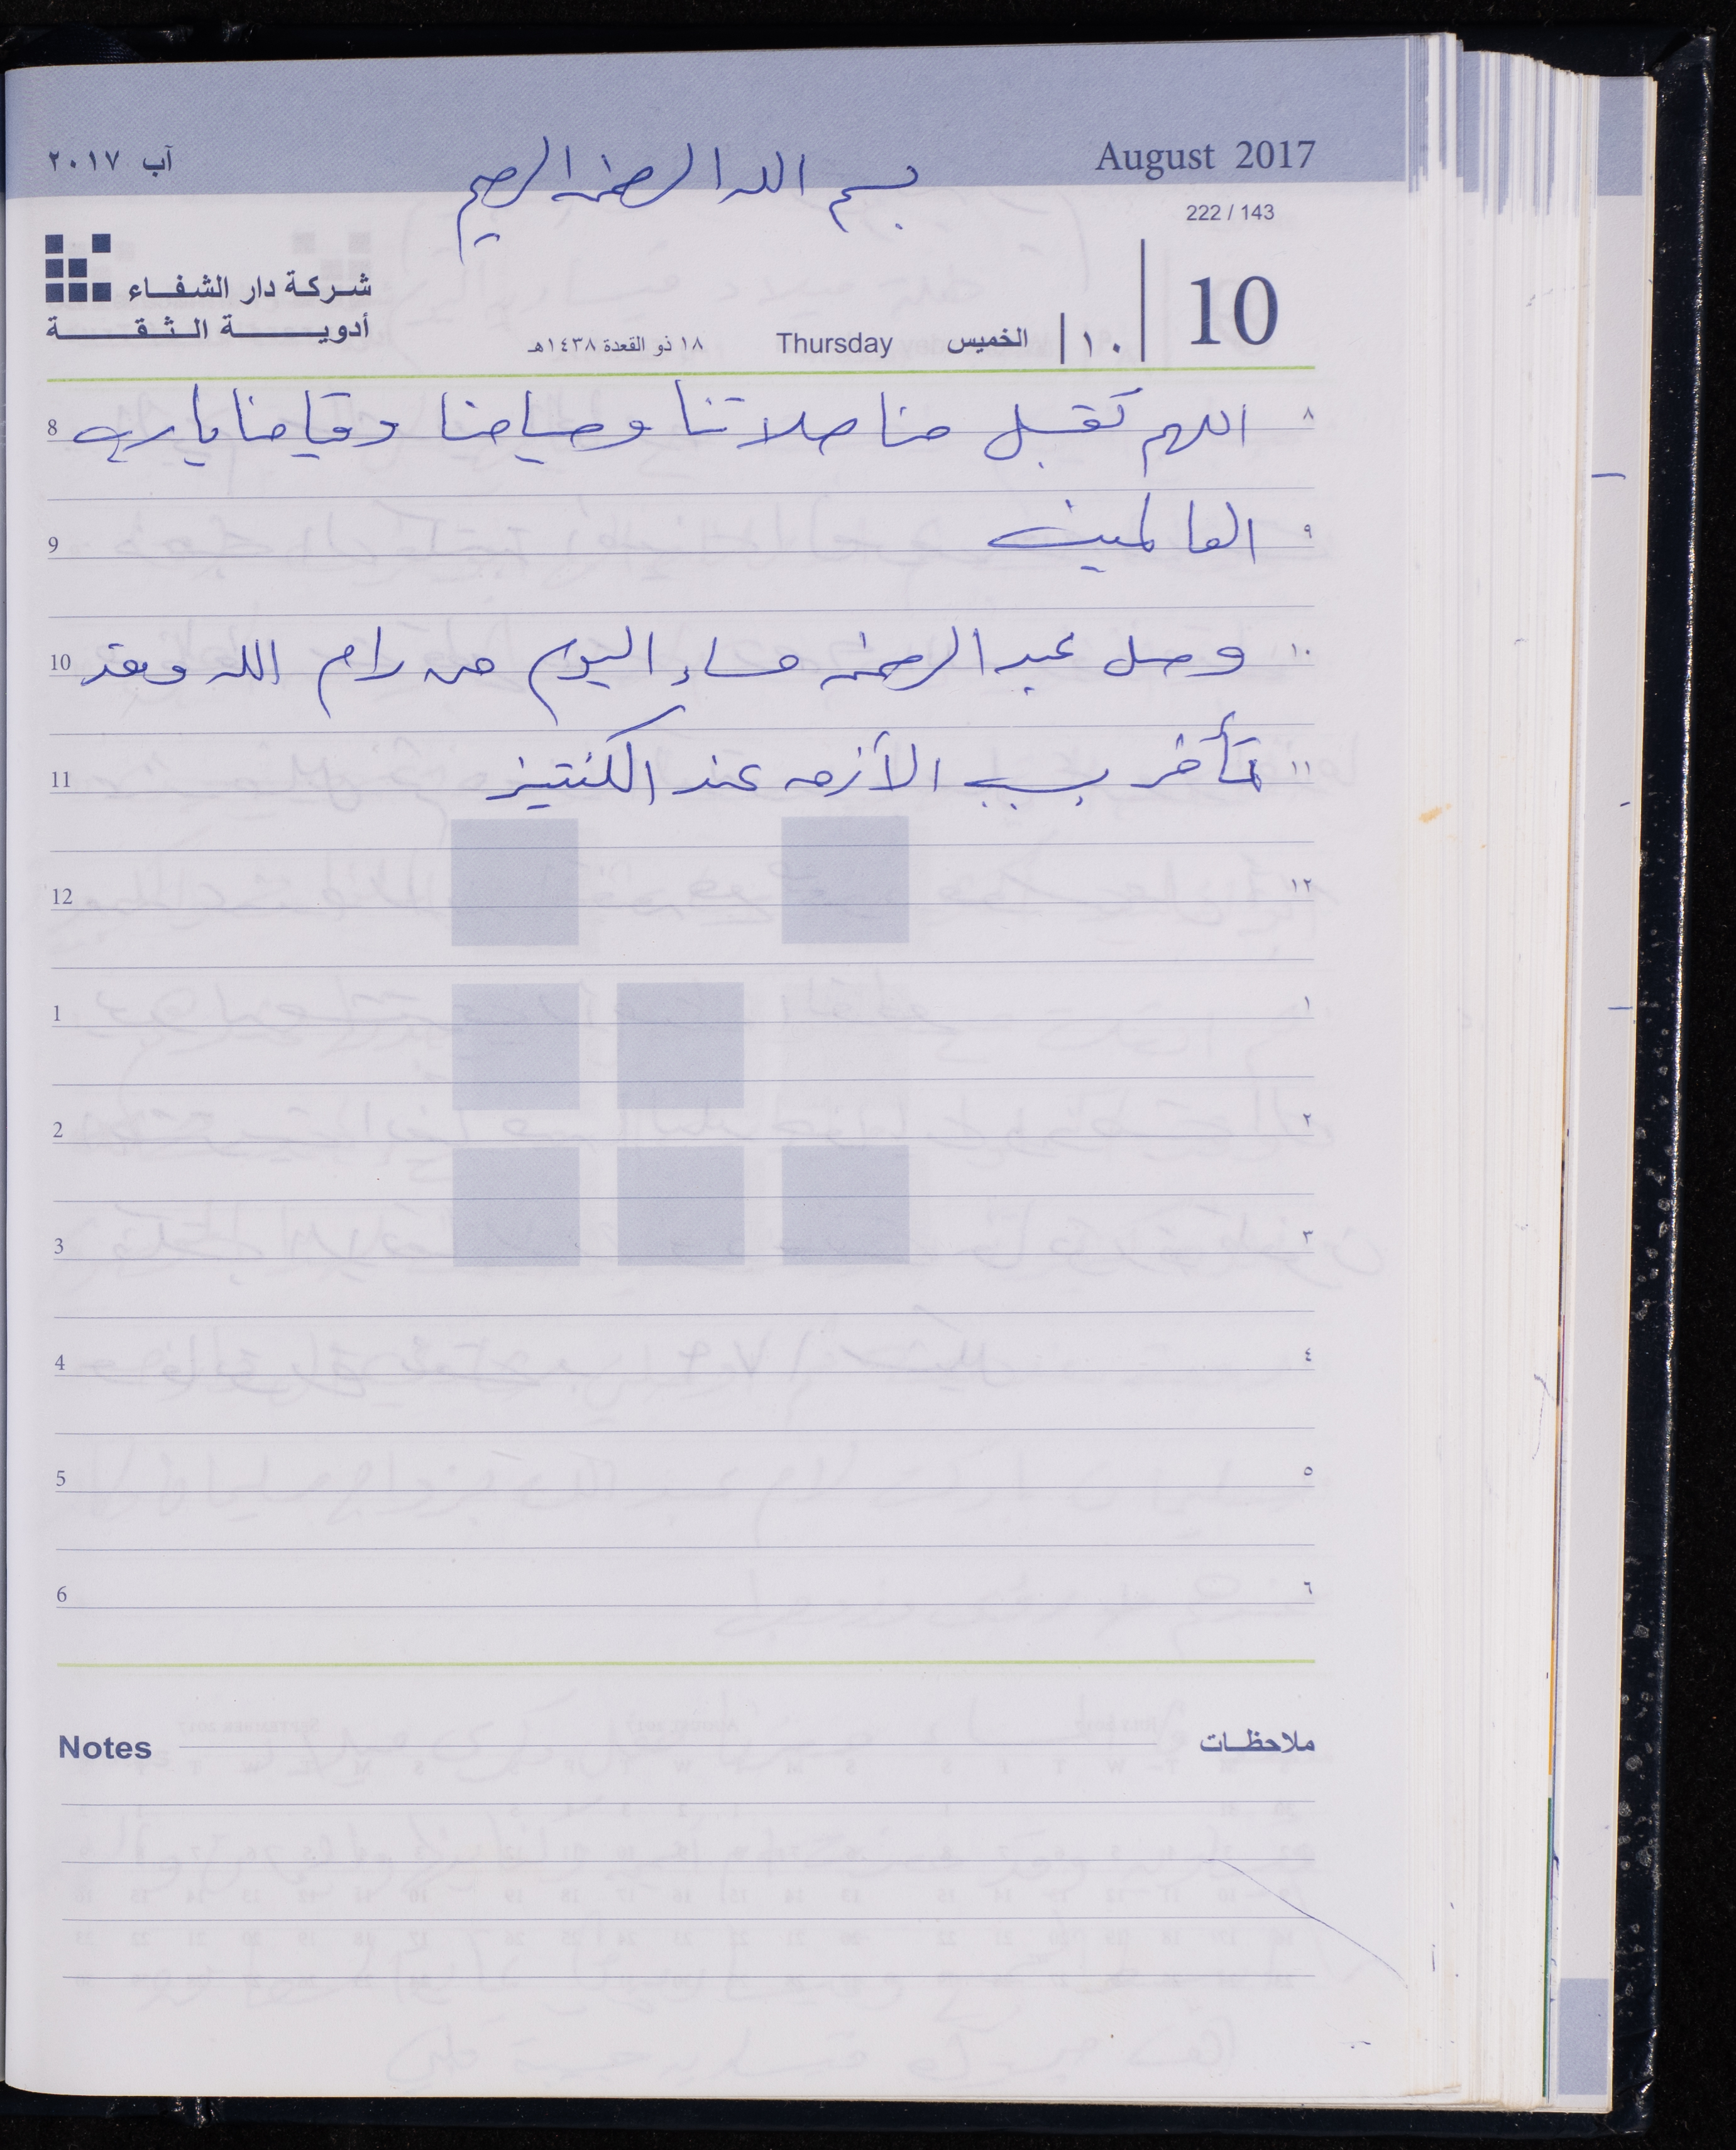 August 2017
بسم الله الرحمن الرحيم
آب ٢٠١٧
222 / 143
10
١٠ الخميس Thursday ١٨ ذو القعدة ١٤٣٨هـ
شركة دار الشفاء
أدوية الثقة
٨ اللهم تقبل منا صلاتنا وصيامنا وقيامنا يا رب 8
٩ العالمين 9
١٠ وصل عبد الرحمن مساء اليوم من رام الله وقد 10
١١ تأخر بسبب الأزمه عند الكنتينر 11
١٢ 12
١ 1
٢ 2
٣ 3
٤ 4
٥ 5
٦ 6
ملاحظات Notes